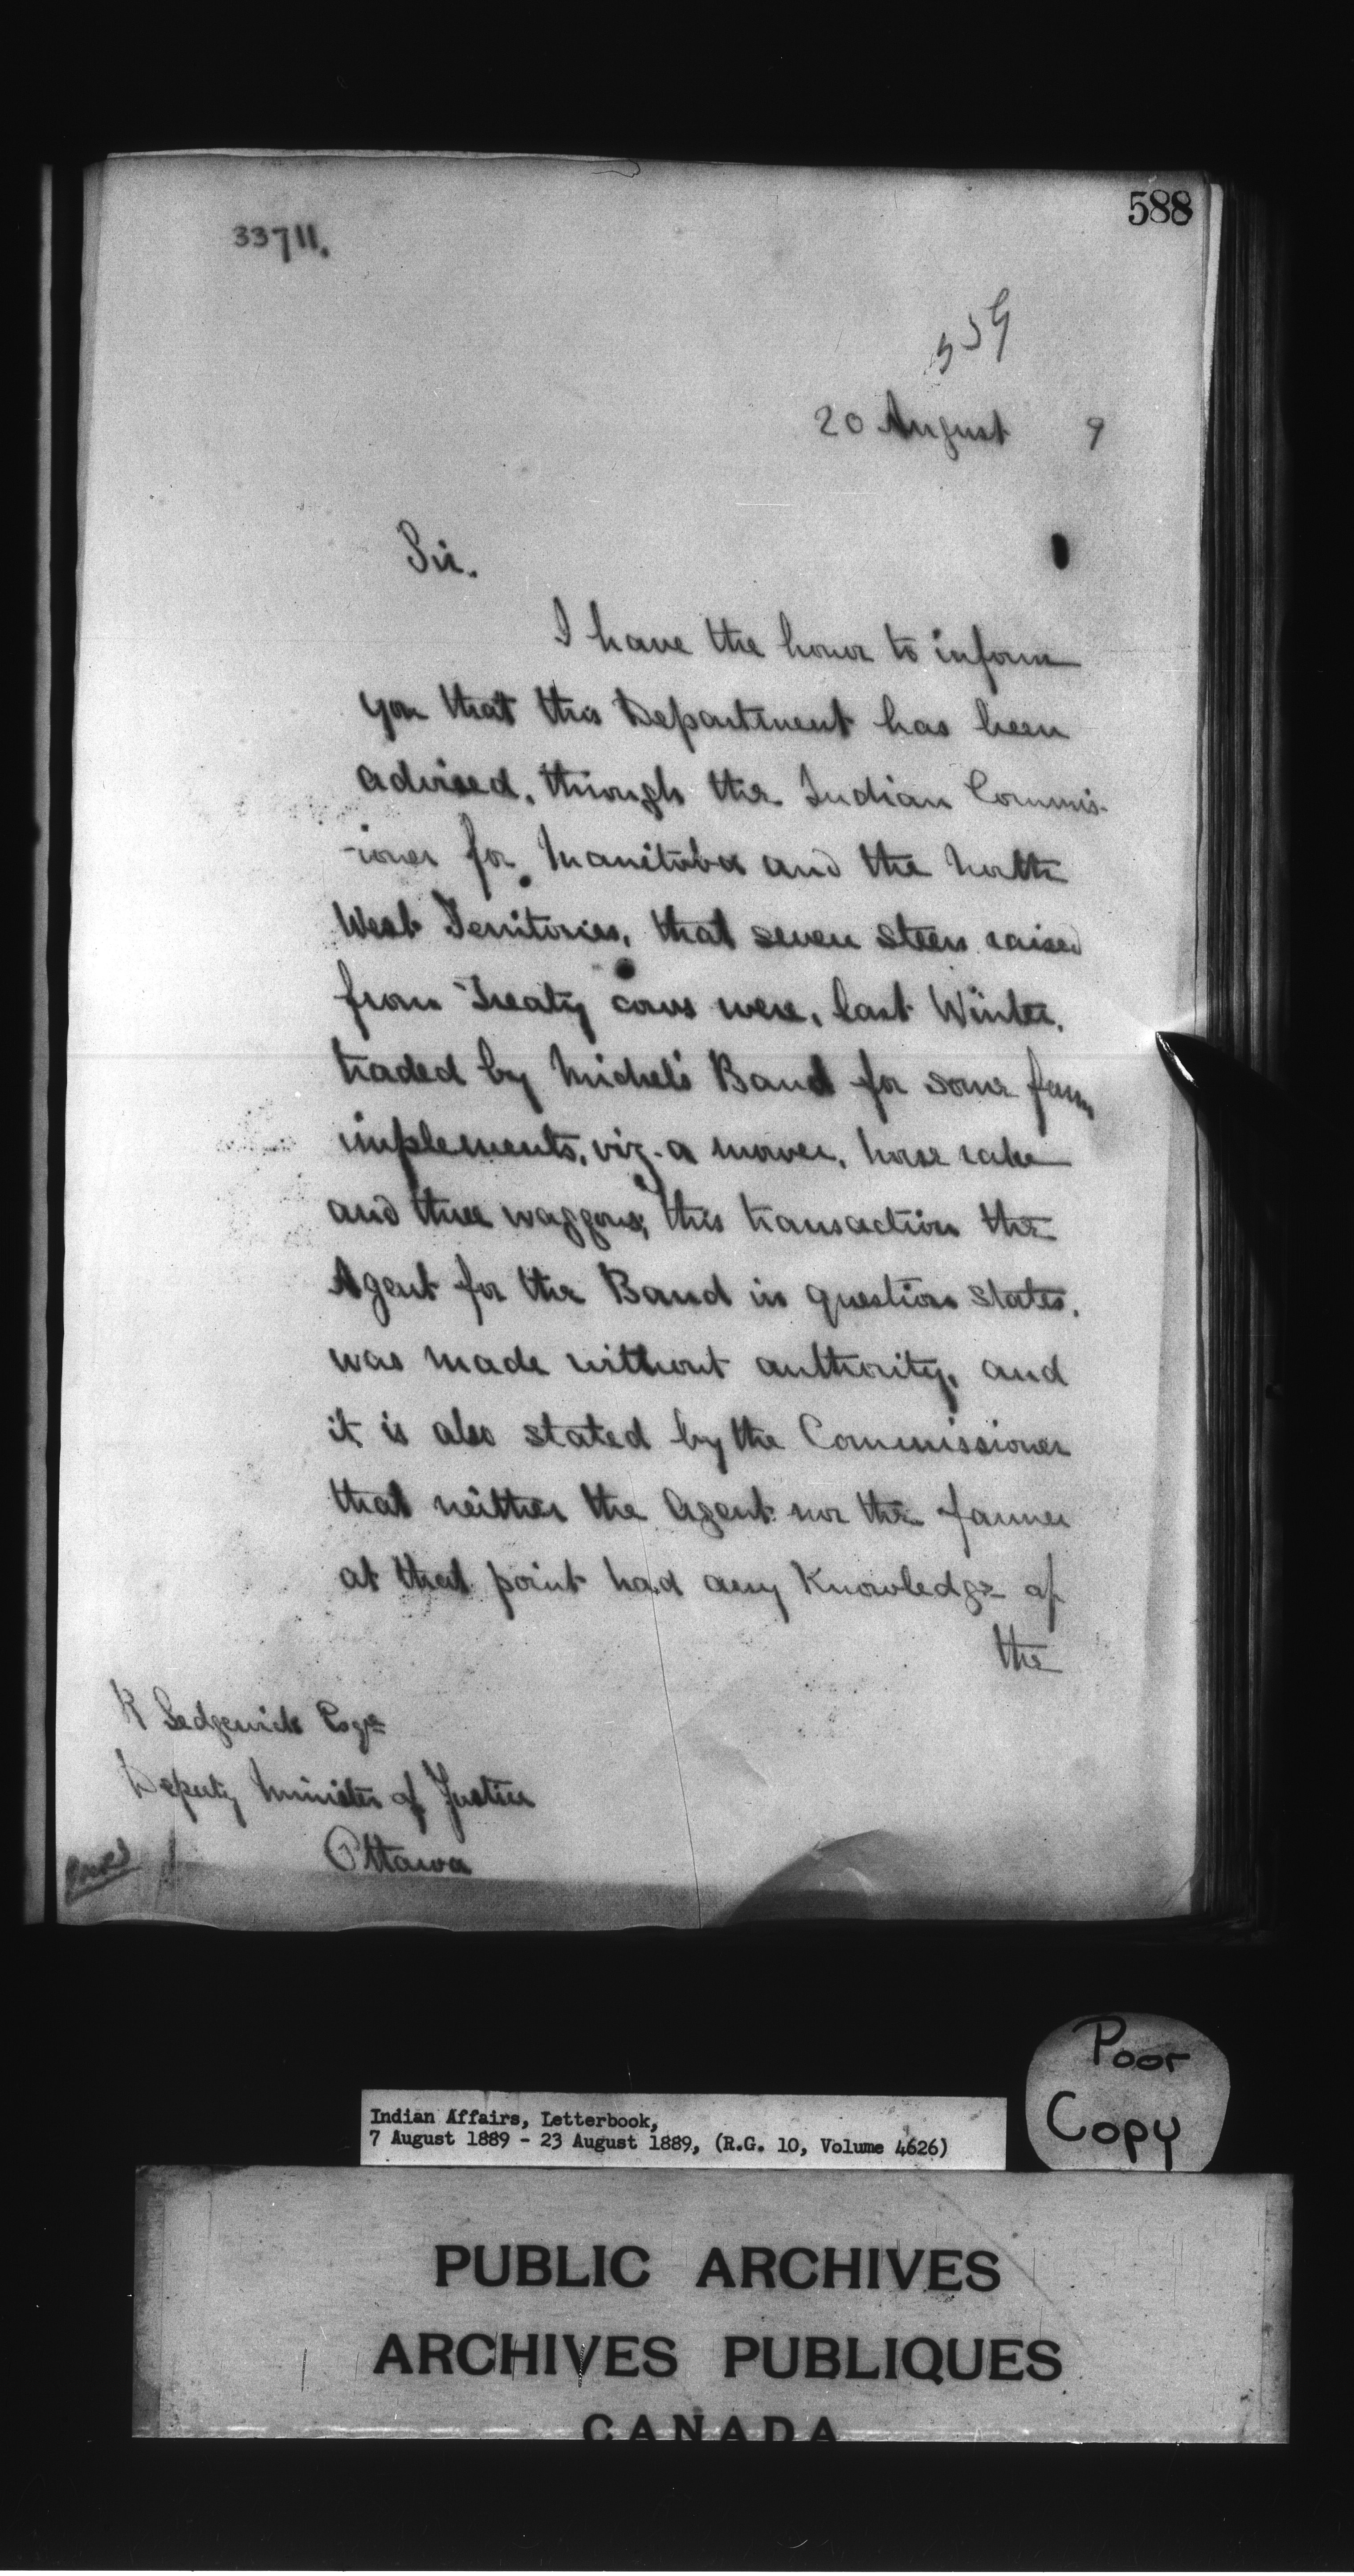 588
33711.
559
20 August 9
Sir.
I have the honor to inform
you that this Department has been
advised, through the Indian Commis-
-ioner for Manitoba and the North
West Territories, that seven steers raised
from Treaty cows were, last Winter,
traded by Michel's Band for some farm
implements, viz. a mower, horse rake
and three waggons; this transaction the
Agent for the Band in question states,
was made without authority, and
it is also stated by the Commissioner
that neither the Agent nor the farmer
at that point had any Knowledge of
the
R Sedgewick Esqre
Deputy Minister of Justice
Ottawa
Poor
Copy
Indian Affairs, Letterbook,
7 August 1889 - 23 August 1889, (R.G. 10, Volume 4626)
PUBLIC ARCHIVES
ARCHIVES PUBLIQUES
CANADA